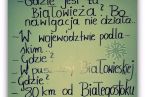 - Gdzie jest ta
Białowieża? Bo
nawigacja nie działa.
- W województwie podla-
skim.
- Gdzie?
- W pusz... Białowieskiej
- Gdzie?
- 30 km od Białegostoku